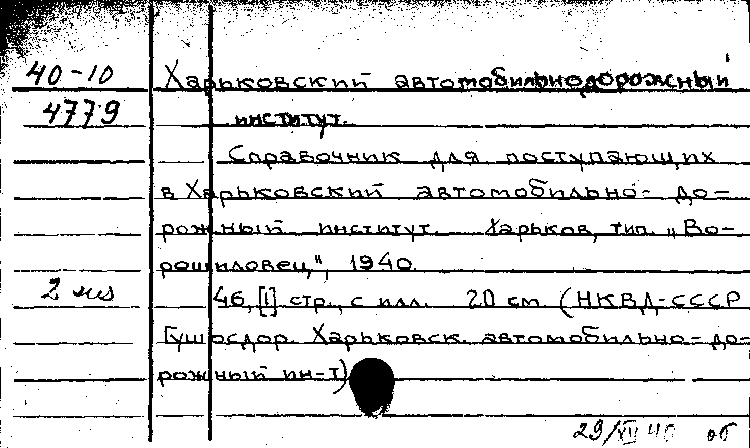 40-10 Харьковский автомобильнодорожный
4779 институт.
Справочник для поступающих
в Харьковский автомобильно-до-
рожный институт. Харьков, тип. „Во-
рошиловец", 1940.
2 экз 46, [1] стр., с илл. 20 см. (НКВД-СССР
Гушосдор. Харьковск. автомобильно-до-
рожный ин-т)
29/VII 40 об